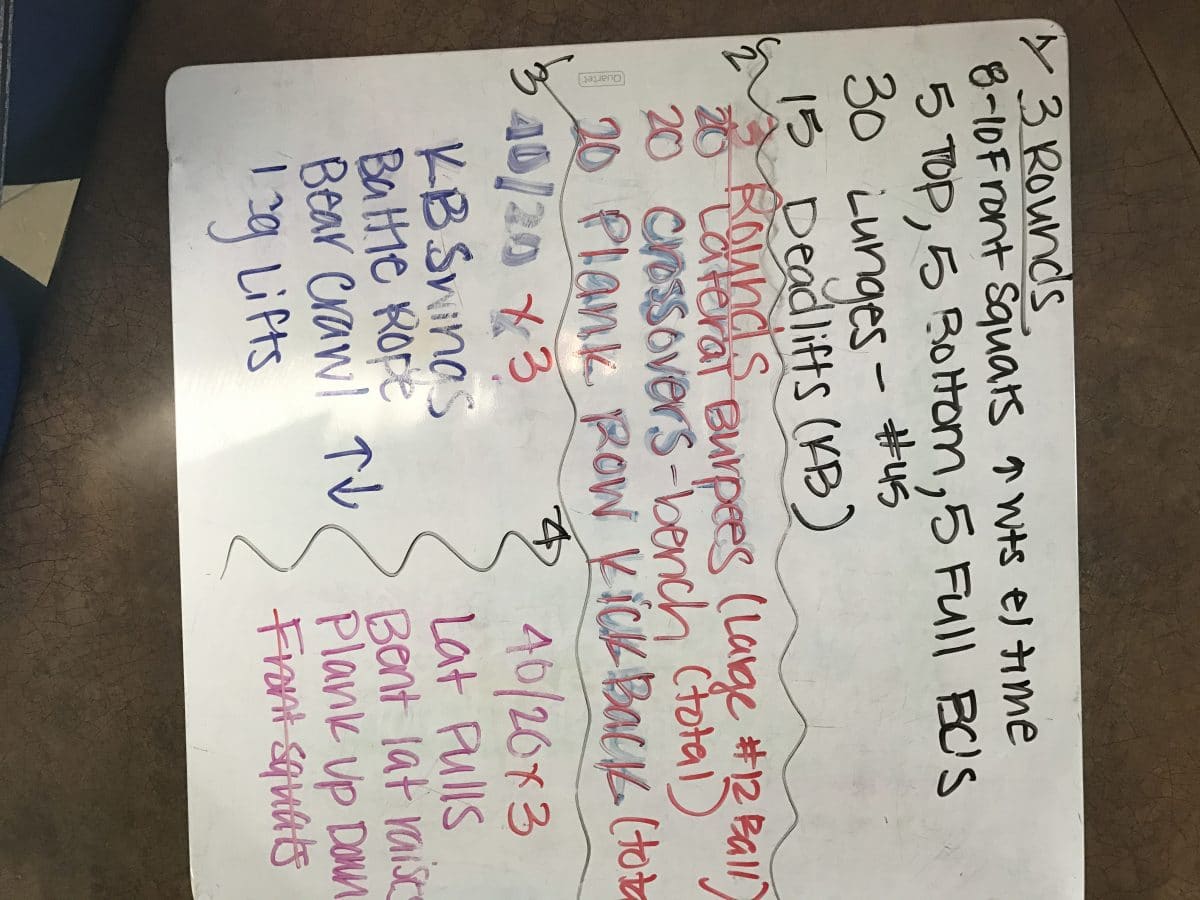 1- 3 Rounds
8-10 Front Squats ↑ wts ea time
5 TOP, 5 Bottom, 5 Full BC'S
30 Lunges - #45
15 Deadlifts (KB)
2
3 Rounds
20 Lateral Burpees (Large #12 Ball)
20 Crossovers - bench (total)
20 Plank Row Kick Back (tota
3 40/20 x 3
KB Swings
Battle Rope
Bear Crawl ↑↓
Leg Lifts
4
40/20 x 3
Lat Pulls
Bent lat raise
Plank Up Down
Front Squats
Quartet